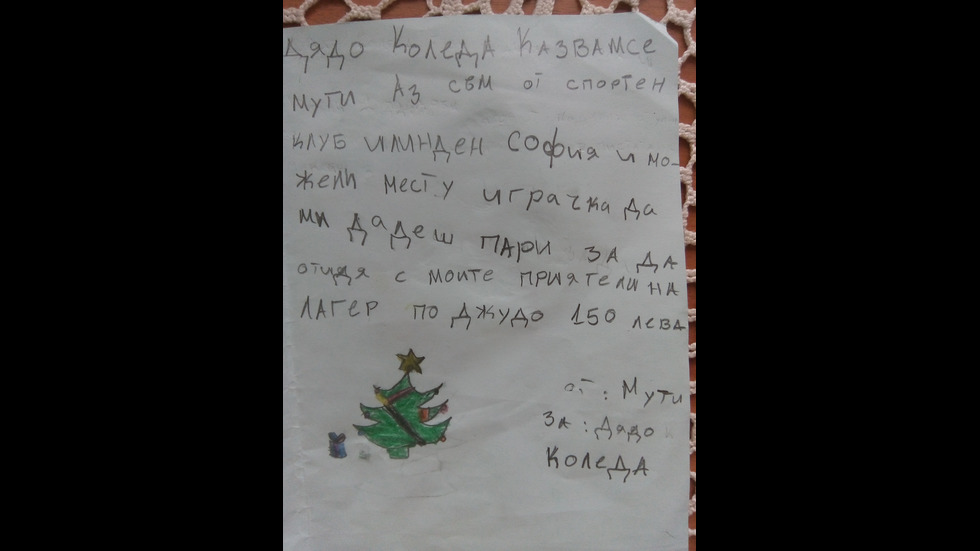 ДЯДО КОЛЕДА КАЗВАМСЕ
МУТИ АЗ СЪМ ОТ СПОРТЕН
КЛУБ ИЛИНДЕН СОФИЯ И МО-
ЖЕЛИ МЕСТУ ИГРАЧКА ДА
МИ ДАДЕШ ПАРИ ЗА ДА
ОТИДЯ С МОИТЕ ПРИЯТЕЛИ НА
ЛАГЕР ПО ДЖУДО 150 ЛЕВА
ОТ: МУТИ
ЗА: ДЯДО
КОЛЕДА